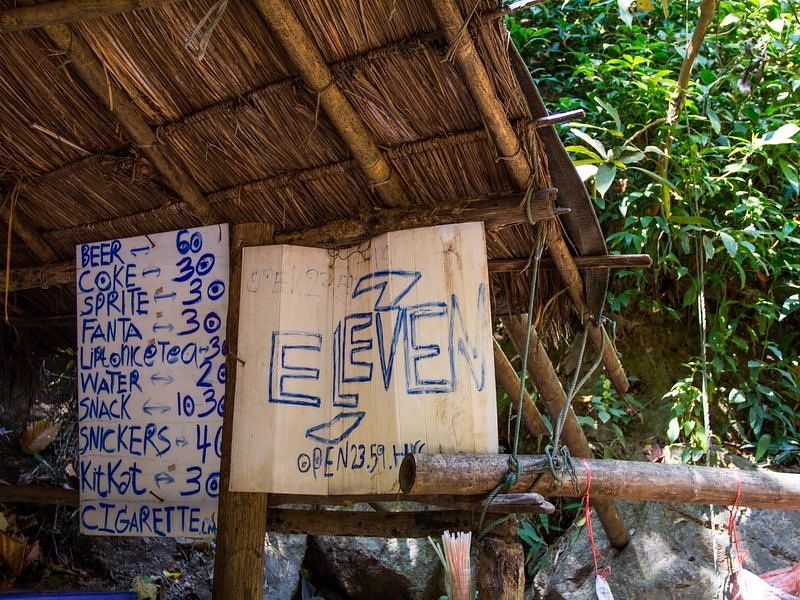 BEER → 60
COKE ↔ 30
SPRITE ↔ 30
FANTA ↔ 30
LiptoniceTea → 30
WATER ↔ 20
SNACK ↔ 10.30
SNICKERS ↔ 40
KitKat ↔ 30
CIGARETTE
7
ELEVEN
OPEN 23.59.